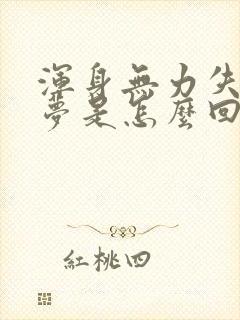 渾身無力失
夢是怎麼回
紅桃四